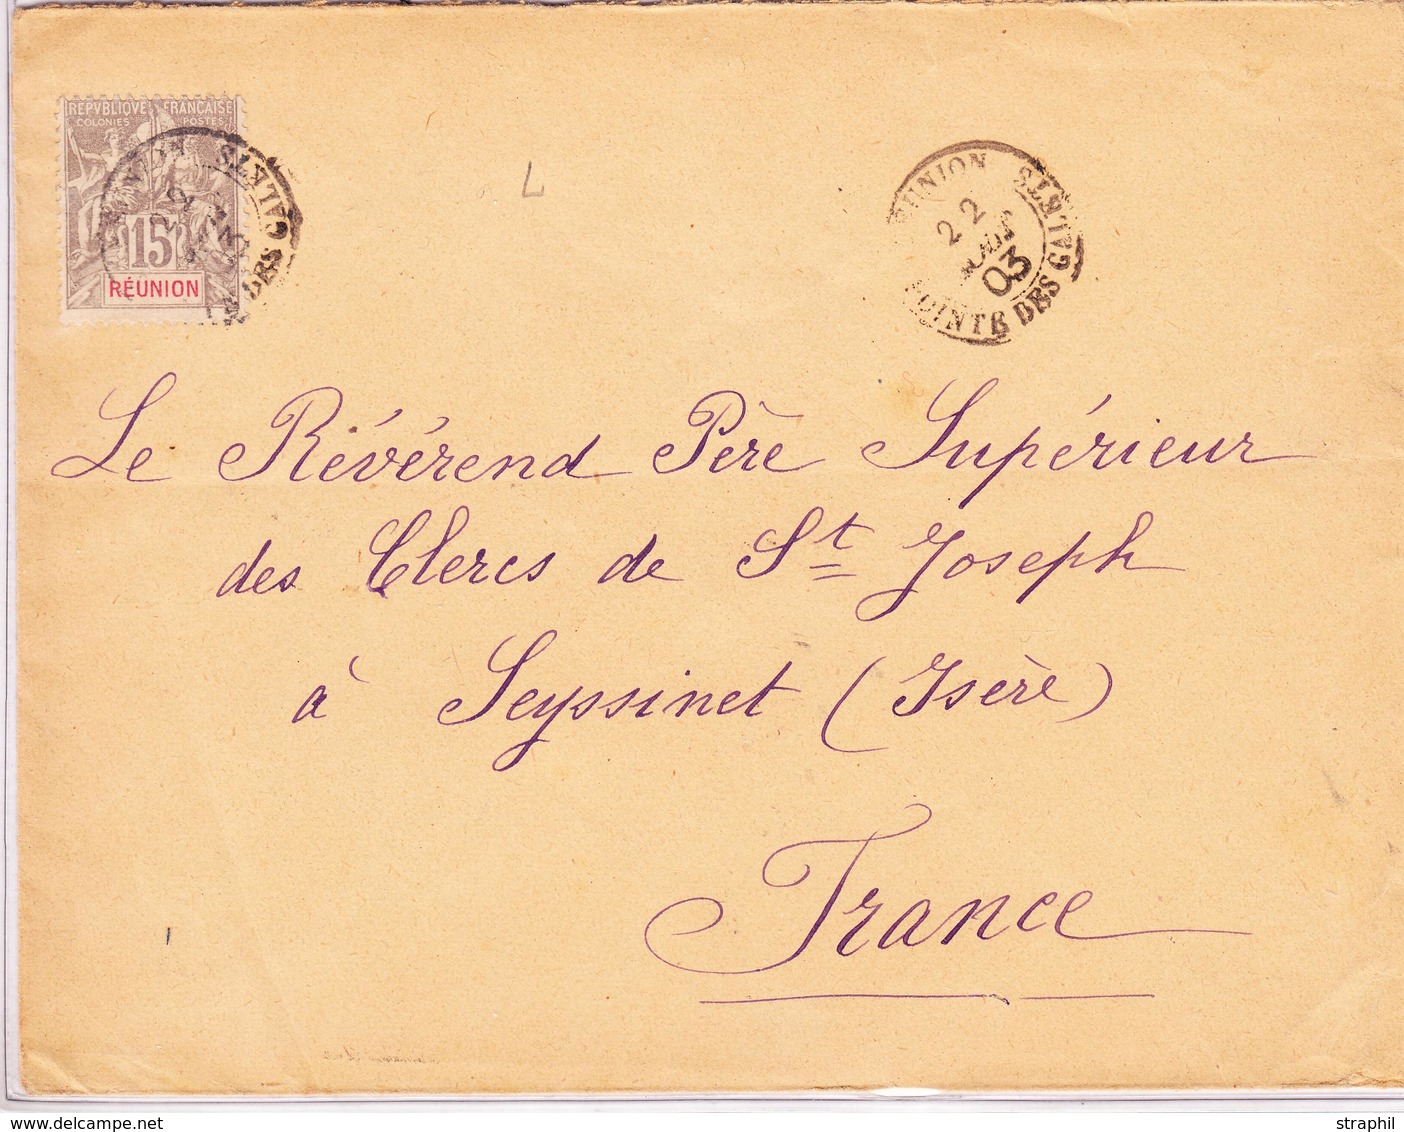 REPVBLIQVE FRANÇAISE
COLONIES POSTES
15
RÉUNION
RÉUNION
22
GALETS
DES
L
RÉUNION
22
03
POINTE DES GALETS
Le Révérend Père Supérieur
des Clercs de St Joseph
à Seyssinet (Isère)
France
straphil